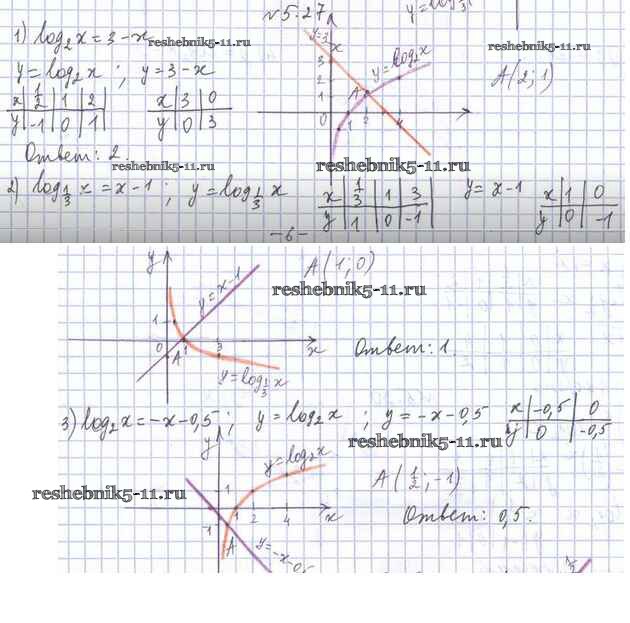 №5.27
1) log₂x = 3 - x
reshebnik5-11.ru
y = log₂x ; y = 3 - x
x | 1/2 | 1 | 2
y | -1 | 0 | 1
x | 3 | 0
y | 0 | 3
y=log₂x
A
3
2
1
0
1
2
4
A(2; 1)
reshebnik5-11.ru
Ответ: 2.
reshebnik5-11.ru
reshebnik5-11.ru
2) log_{1/3} x = x - 1 ; y = log_{1/3} x
x | 1/3 | 1 | 3
y | 1 | 0 | -1
y = x - 1
x | 1 | 0
y | 0 | -1
-6-
y
y=x-1
A(1; 0)
reshebnik5-11.ru
1
0
A
1
3
x
y=log_{1/3} x
Ответ: 1.
3) log₂x = -x - 0,5 ; y = log₂x ; y = -x - 0,5
x | -0,5 | 0
y | 0 | -0,5
reshebnik5-11.ru
y
y=log₂x
A(1/2; -1)
reshebnik5-11.ru
1
1
2
4
x
-1
A
Ответ: 0,5.